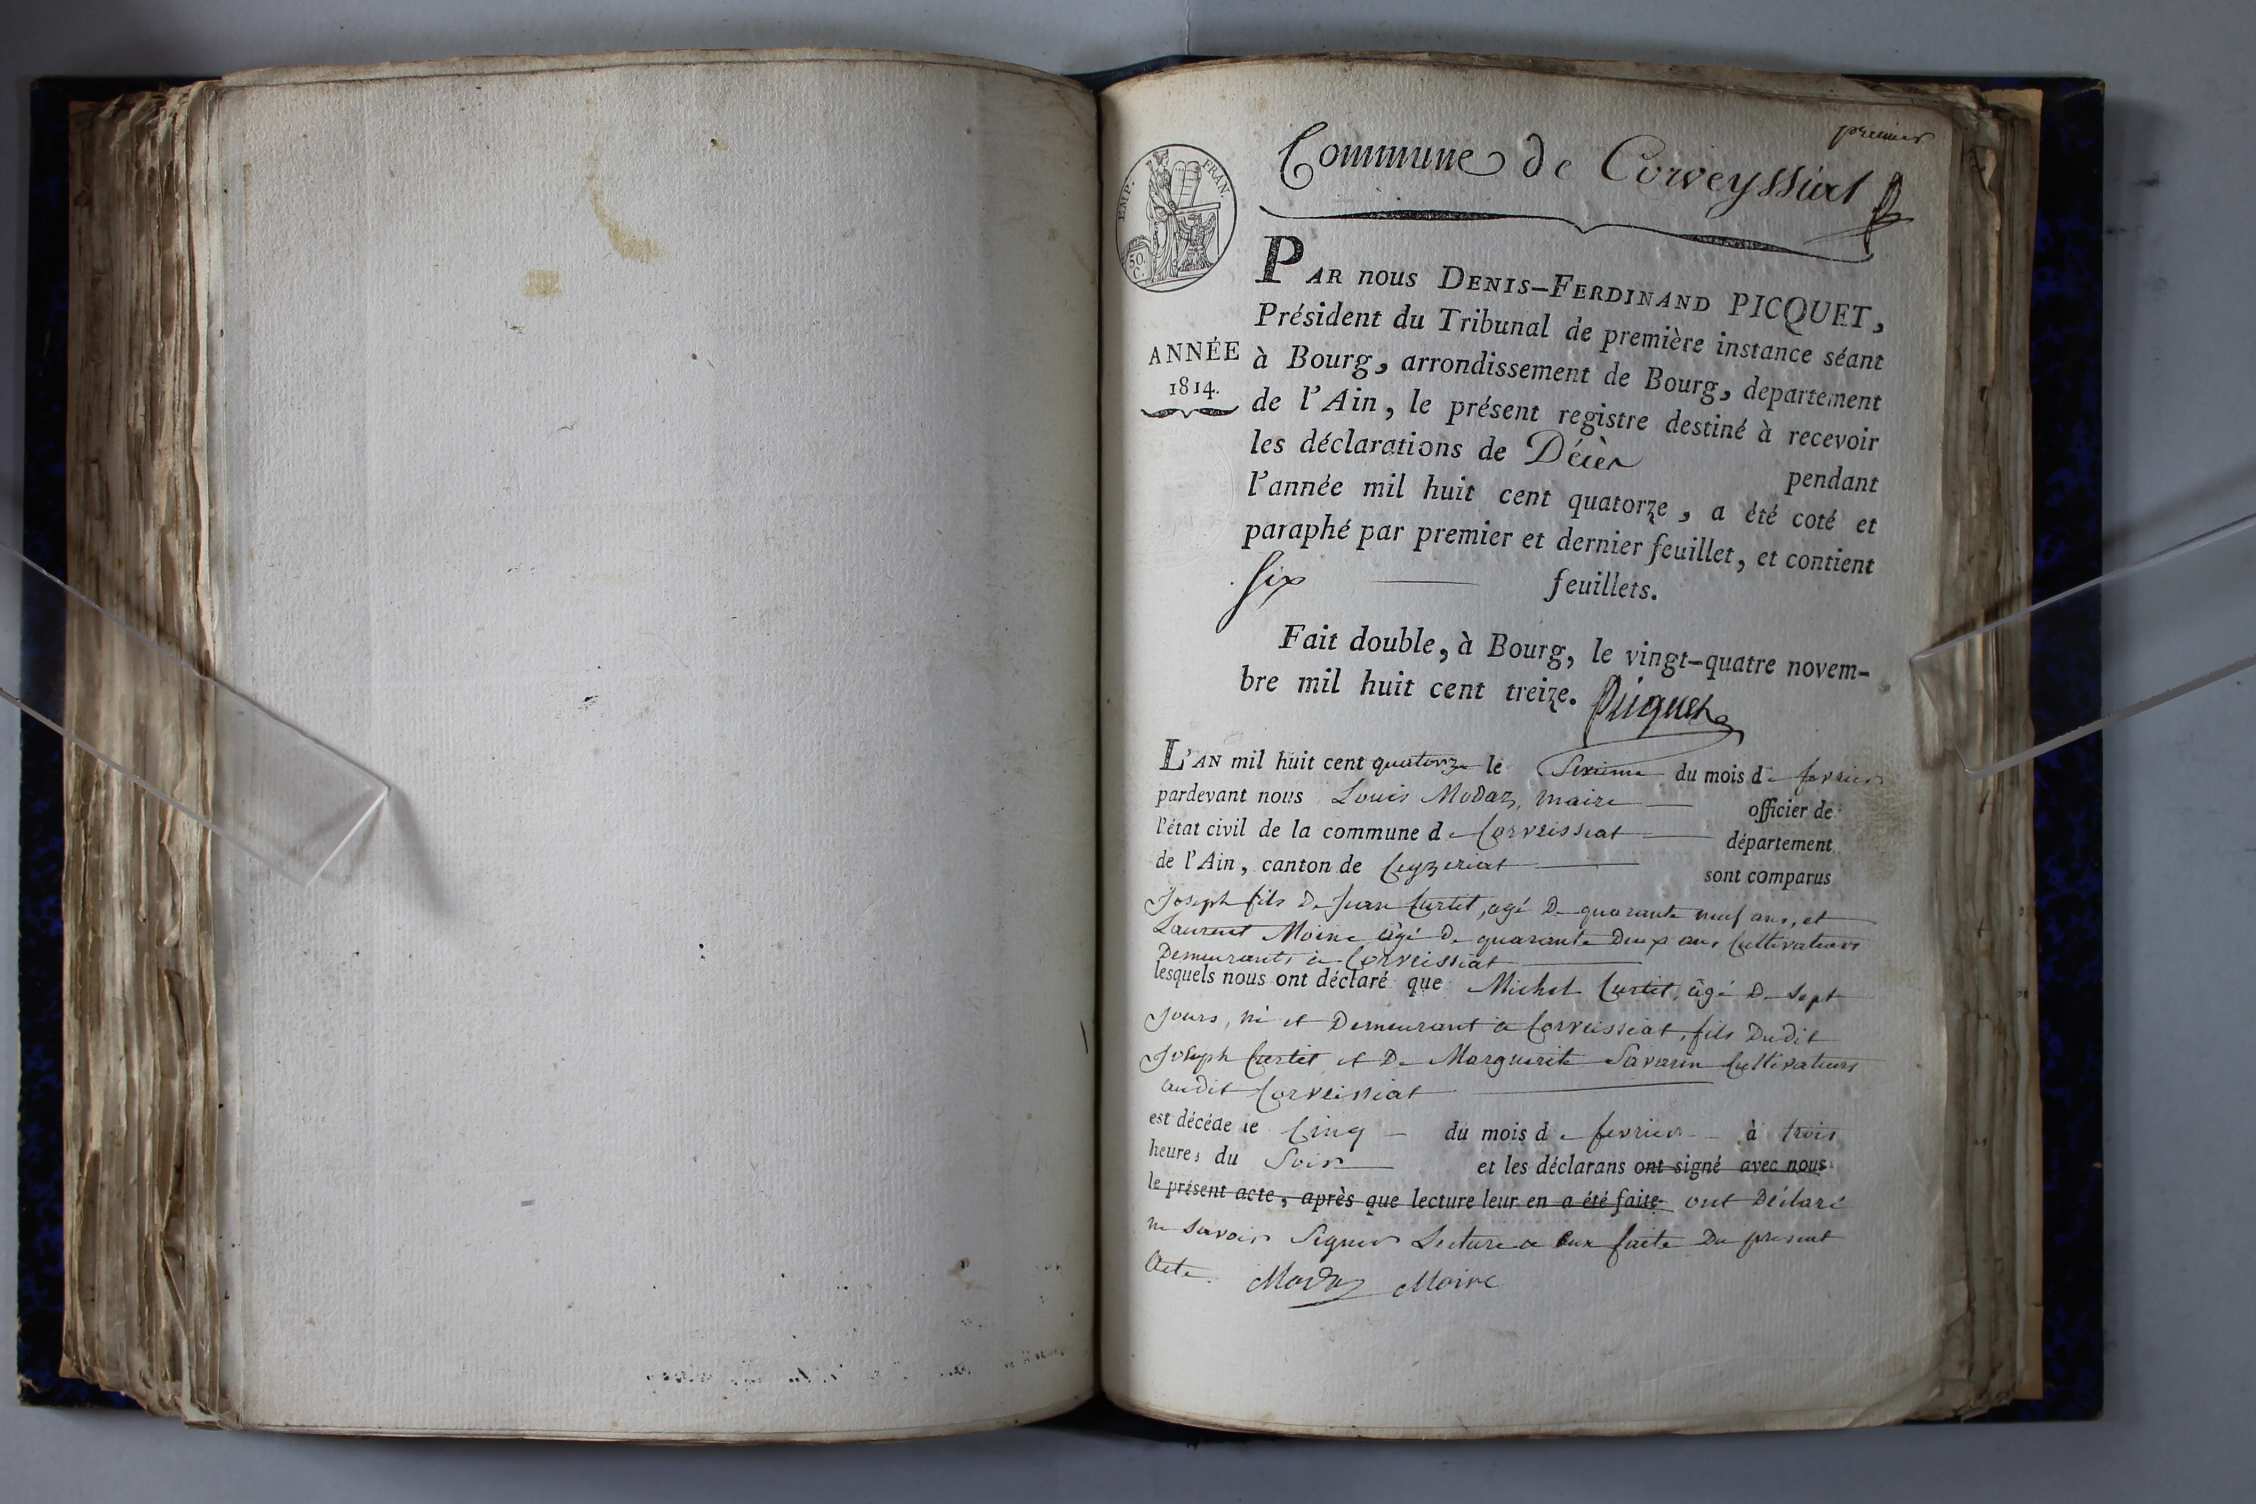 premier
Commune de Corveyssiat
EMP. FRAN.
50.
C.
PAR nous DENIS-FERDINAND PICQUET,
Président du Tribunal de première instance séant
ANNÉE
1814.
à Bourg, arrondissement de Bourg, département
de l'Ain, le présent registre destiné à recevoir
les déclarations de Décès pendant
l'année mil huit cent quatorze, a été coté et
paraphé par premier et dernier feuillet, et contient
six feuillets.
Fait double, à Bourg, le vingt-quatre novem-
bre mil huit cent treize. Picquet
L'AN mil huit cent quatorze le sixieme du mois de fevrier
pardevant nous Louis Modaz, maire officier de
l'état civil de la commune de Corveissiat département
de l'Ain, canton de Ceyzeriat sont comparus
Joseph fils de Jean Curtet, agé de quarante neuf ans, et
Laurent Moine agé de quarante deux ans Cultivateurs
Demeurants à Corveissiat
lesquels nous ont déclaré que Michel Curtet, âgé de sept
jours, né et Demeurant a Corveissiat, fils Dudit
Joseph Curtet et De Marguerite Savarin Cultivateurs
audit Corveissiat
est décédé le Cinq du mois de fevrier à trois
heures du Soir et les déclarans ont signé avec nous
le présent acte, après que lecture leur en a été faite ont Déclaré
ne savoir Signer Lecture a eux faite Du present
Acte. Modaz Maire